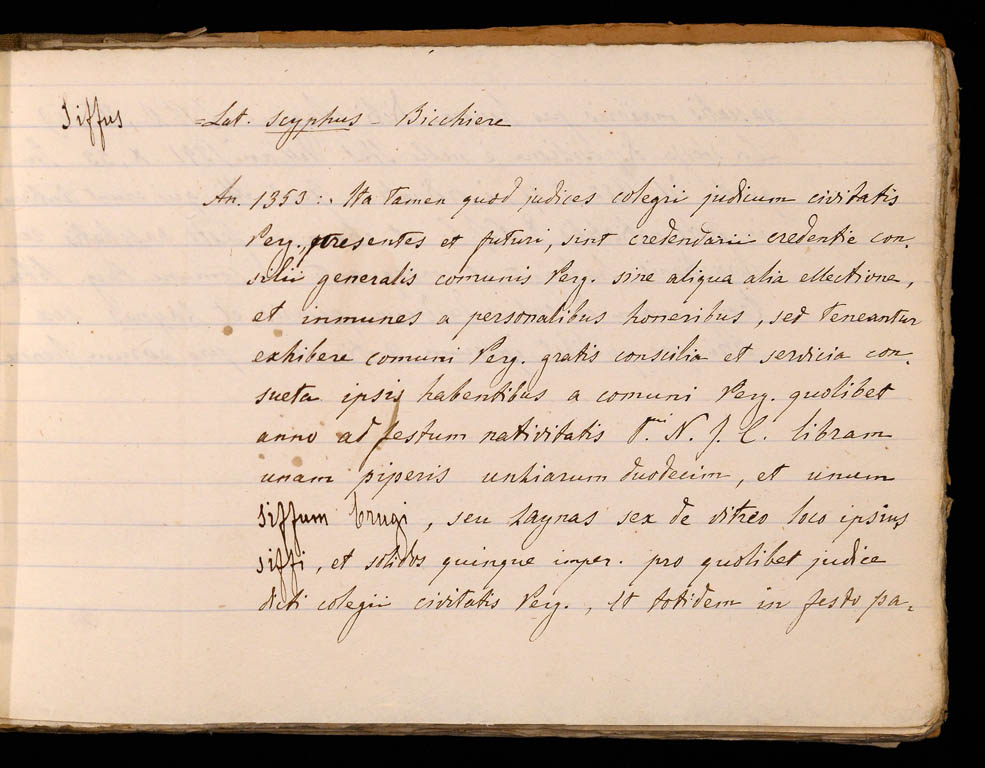 Siffus = Lat. scyphus - Bicchiere
An. 1353: Ita tamen quod judices colegii judicum civitatis
Perg. presentes et futuri, sint credendarii credentie con-
silii generalis comunis Perg. sine aliqua alia ellectione,
et inmunes a personalibus honeribus, sed teneantur
exhibere comuni Perg. gratis conscilia et servicia con-
sueta ipsis habentibus a comuni Perg. quolibet
anno ad festum nativitatis D.ni N. J. C. libram
unam piperis untiarum duodecim, et unum
siffum brugi, seu zaynas sex de vitreo loco ipsius
siffi, et solidos quinque imper. pro quolibet judice
dicti colegii civitatis Perg., et totidem in festo pa-